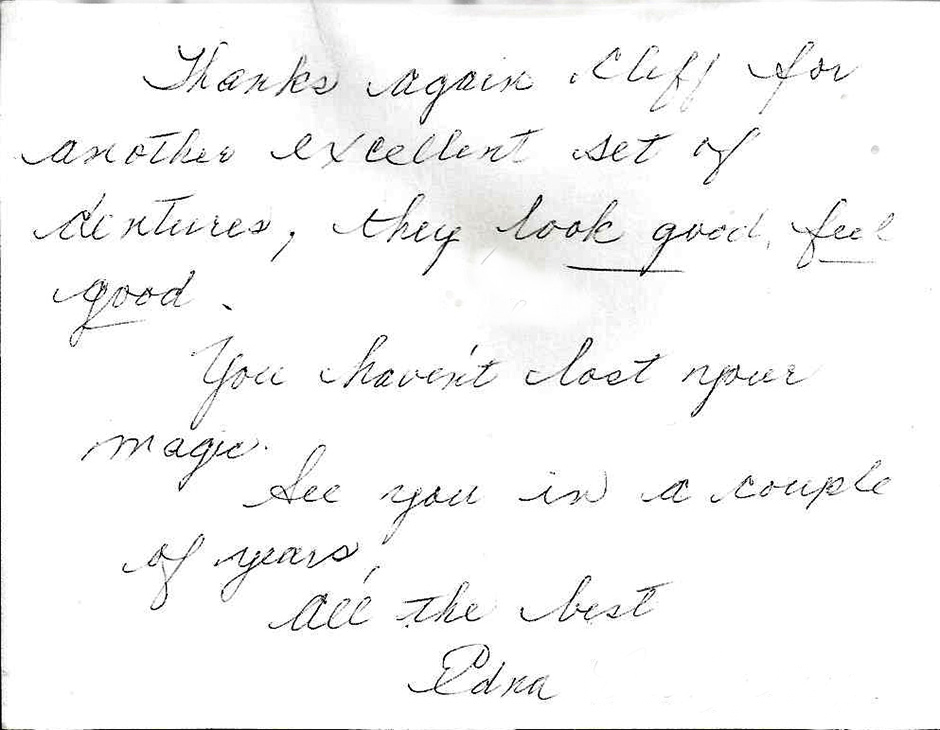 Thanks again Cliff for
another excellent set of
dentures, they look good, feel
good.
You haven't lost your
magic.
See you in a couple
of years,
All the best
Edna